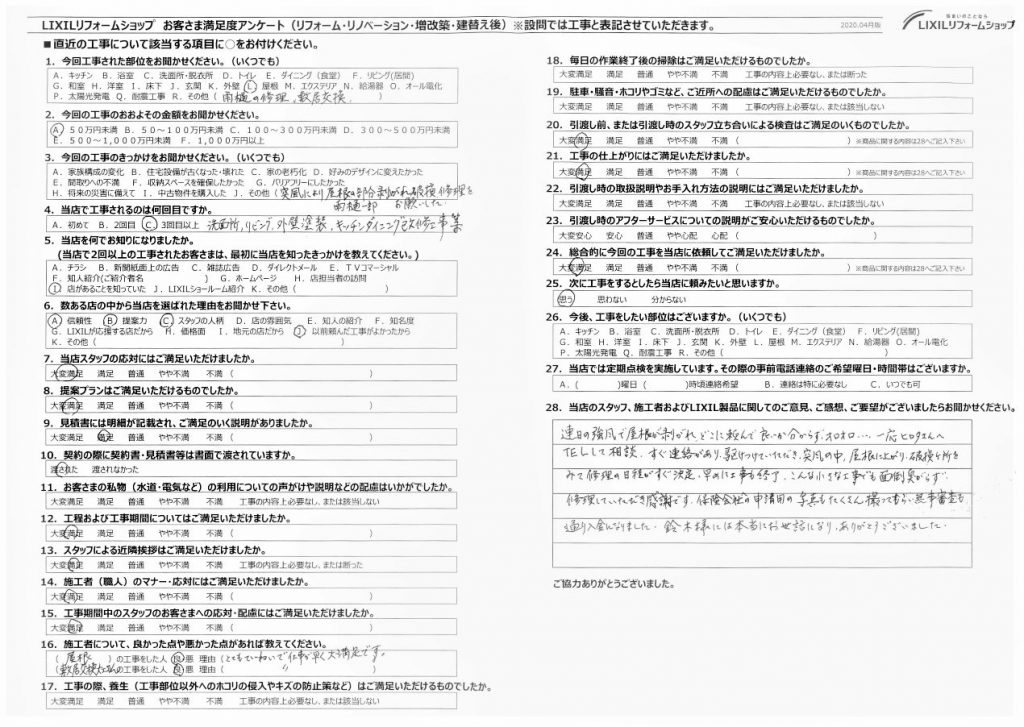 LIXILリフォームショップ お客さま満足度アンケート（リフォーム・リノベーション・増改築・建替え後）※設問では工事と表記させていただきます。
2020.04月版
住まいのことなら
LIXILリフォームショップ
■直近の工事について該当する項目に○をお付けください。
1．今回工事された部位をお聞かせください。（いくつでも）
A．キッチン B．浴室 C．洗面所・脱衣所 D．トイレ E．ダイニング（食堂） F．リビング(居間)
G．和室 H．洋室 I．床下 J．玄関 K．外壁 L．屋根 M．エクステリア N．給湯器 O．オール電化
P．太陽光発電 Q．耐震工事 R．その他（ 雨樋の修理、敷居交換 ）
2．今回の工事のおおよその金額をお聞かせください。
A．50万円未満 B．50～100万円未満 C．100～300万円未満 D．300～500万円未満
E．500～1,000万円未満 F．1,000万円以上
3．今回の工事のきっかけをお聞かせください。（いくつでも）
A．家族構成の変化 B．住宅設備が古くなった・壊れた C．家の老朽化 D．好みのデザインに変えたかった
E．間取りへの不満 F．収納スペースを確保したかった G．バリアフリーにしたかった
H．将来の災害に備えて I．中古物件を購入した J．その他（ 突風により屋根の一部分剥がれ、破損修理を
雨樋一部 お願いした
4．当店で工事されるのは何回目ですか。
A．初めて B．2回目 C．3回目以上 洗面所、リビング、外壁塗装、キッチンダイニング改修工事等
5．当店を何でお知りになりましたか。
（当店で2回以上の工事されたお客さまは、最初に当店を知ったきっかけを教えてください。）
A．チラシ B．新聞紙面上の広告 C．雑誌広告 D．ダイレクトメール E．TVコマーシャル
F．知人紹介(ご紹介者名 ) G．ホームページ H．店担当者の訪問
I．店があることを知っていた J．LIXILショールーム紹介 K．その他（ ）
6．数ある店の中から当店を選ばれた理由をお聞かせ下さい。
A．信頼性 B．提案力 C．スタッフの人柄 D．店の雰囲気 E．知人の紹介 F．知名度
G．LIXILが応援する店だから H．価格面 I．地元の店だから J．以前頼んだ工事がよかったから
K．その他（ ）
7．当店スタッフの応対にはご満足いただけましたか。
大変満足 満足 普通 やや不満 不満（ ）
8．提案プランはご満足いただけるものでしたか。
大変満足 満足 普通 やや不満 不満（ ）
9．見積書には明細が記載され、ご満足のいく説明がありましたか。
大変満足 満足 普通 やや不満 不満（ ）
10．契約の際に契約書・見積書等は書面で渡されていますか。
渡された 渡されなかった
11．お客さまの私物（水道・電気など）の利用についての声がけや説明などの配慮はいかがでしたか。
大変満足 満足 普通 やや不満 不満 工事の内容上必要なし、または該当しない
12．工程および工事期間についてはご満足いただけましたか。
大変満足 満足 普通 やや不満 不満（ ）
13．スタッフによる近隣挨拶はご満足いただけましたか。
大変満足 満足 普通 やや不満 不満 工事の内容上必要なし、または断った
14．施工者（職人）のマナー・応対にはご満足いただけましたか。
大変満足 満足 普通 やや不満 不満（ ）
15．工事期間中のスタッフのお客さまへの応対・配慮にはご満足いただけましたか。
大変満足 満足 普通 やや不満 不満（ ）
16．施工者について、良かった点や悪かった点があれば教えてください。
（ 屋根 ）の工事をした人 良 悪 理由（ とてもていねいで仕事が早く大満足です。
（ 敷居交換 の工事をした人 良 悪 理由（ 〃 ）
17．工事の際、養生（工事部位以外へのホコリの侵入やキズの防止策など）はご満足いただけるものでしたか。
大変満足 満足 普通 やや不満 不満 工事の内容上必要なし、または該当しない
18．毎日の作業終了後の掃除はご満足いただけるものでしたか。
大変満足 満足 普通 やや不満 不満 工事の内容上必要なし、または断った
19．駐車・騒音・ホコリやゴミなど、ご近所への配慮はご満足いただけるものでしたか。
大変満足 満足 普通 やや不満 不満 工事の内容上必要なし、または該当しない
20．引渡し前、または引渡し時のスタッフ立ち合いによる検査はご満足のいくものでしたか。
大変満足 満足 普通 やや不満 不満（ ）※商品に関する内容は28へご記入下さい
21．工事の仕上がりにはご満足いただけましたか。
大変満足 満足 普通 やや不満 不満（ ）※商品に関する内容は28へご記入下さい
22．引渡し時の取扱説明やお手入れ方法の説明にはご満足いただけましたか。
大変満足 満足 普通 やや不満 不満 工事の内容上必要なし、または該当しない
23．引渡し時のアフターサービスについての説明がご安心いただけるものでしたか。
大変安心 安心 普通 やや心配 心配（ ）
24．総合的に今回の工事を当店に依頼してご満足いただけましたか。
大変満足 満足 普通 やや不満 不満（ ）※商品に関する内容は28へご記入下さい
25．次に工事をするとしたら当店に頼みたいと思いますか。
思う 思わない 分からない
26．今後、工事をしたい部位はございますか。（いくつでも）
A．キッチン B．浴室 C．洗面所・脱衣所 D．トイレ E．ダイニング（食堂） F．リビング(居間)
G．和室 H．洋室 I．床下 J．玄関 K．外壁 L．屋根 M．エクステリア N．給湯器 O．オール電化
P．太陽光発電 Q．耐震工事 R．その他（ ）
27．当店では定期点検を実施しています。その際の事前電話連絡のご希望曜日・時間帯はございますか。
A．（ ）曜日（ ）時頃連絡希望 B．連絡は特に必要なし C．いつでも可
28．当店のスタッフ、施工者およびLIXIL製品に関してのご意見、ご感想、ご要望がございましたらお聞かせください。
連日の強風で屋根が剥がれ、どこに頼んで良いか分からず、オロオロ… 一応ヒロタさんへ
TELして相談、すぐ連絡があり、駆けつけていただき、突風の中、屋根に上がり、破損ヶ所を
みて修理の日程がすぐ決定、早めに工事も終了、こんな小さな工事でも面倒臭がらず
仕事していただき感謝です。保険会社の申請用の写真もたくさん撮ってもらい無事審査も
通り入金になりました。鈴木様には本当にお世話になり、ありがとうございました。
ご協力ありがとうございました。